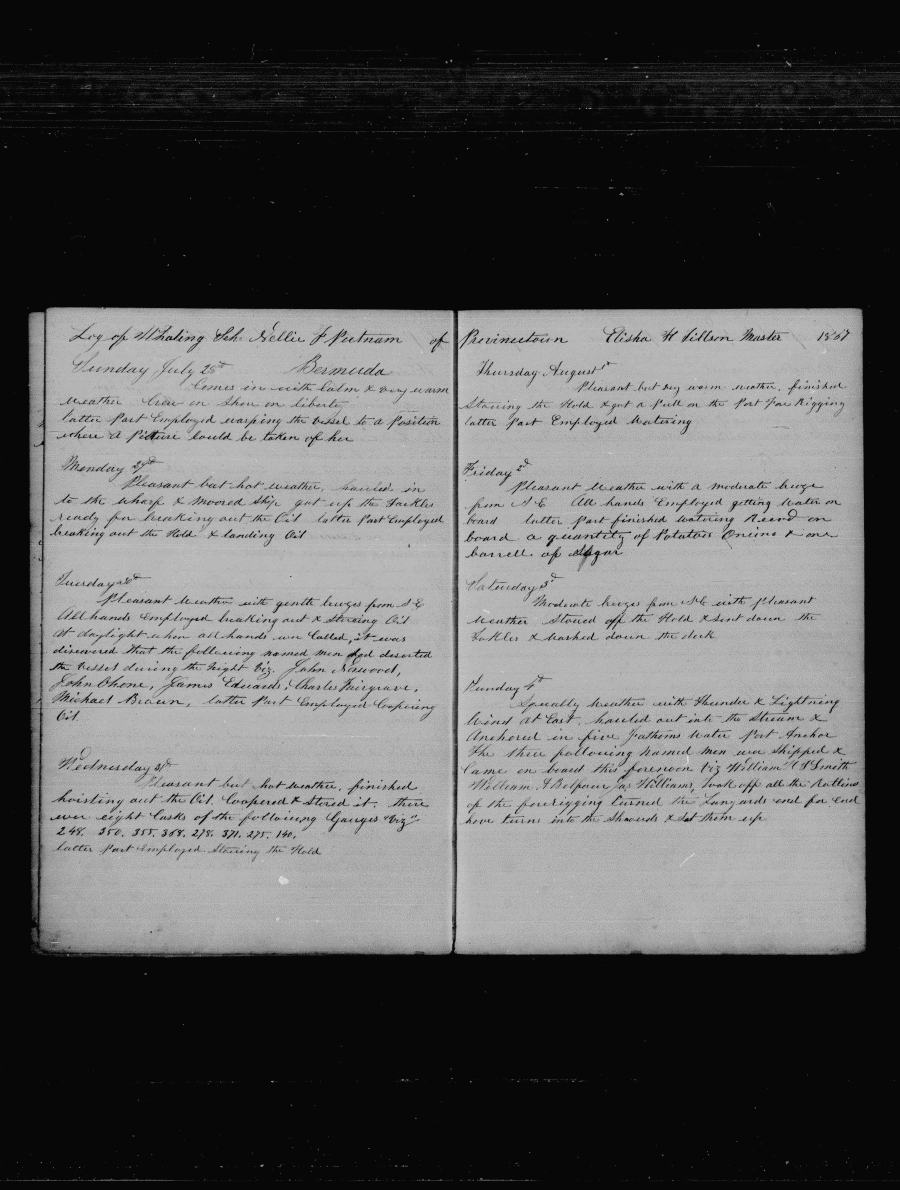 Log of Whaling Sch. Nellie J Putnam of
Sunday July 28th Bermuda
Comes in with Calm & very warm
weather Crew on Shore on liberty
latter Part Employed warping the vessel to a Position
where a Picture could be taken of her
Monday 29th
Pleasant but hot weather, hauled in
to the wharf & moored ship got up the Tackles
ready for breaking out the Oil latter Part Employed
breaking out the Hold & landing Oil
Tuesday 30th
Pleasant weather with gentle breezes from S E
All hands Employed breaking out & Stowing Oil
At daylight when all hands were Called, it was
discovered that the following named men had deserted
the vessel during the Night Viz. John
John James Edwards, Charles
Michael Braun, latter Part Employed Coopering
Oil
Wednesday 31st
Pleasant but hot weather, finished
hoisting out the Oil Coopered & Stored it. there
were eight Casks of the following Gauges "Viz"
248. 350. 355. 368. 278. 371. 275. 140.
latter Part Employed Stowing the Hold
Provincetown Elisha H Tillson Master 1867
Thursday August 1st
Pleasant but very warm weather, finished
Stowing the Hold & got a Pull on the Port Fore Rigging
latter Part Employed Watering
Friday 2d
Pleasant weather with a moderate breeze
from S E All hands Employed getting Water on
board latter Part finished watering Recvd on
board a quantity of Potatoes Onions & one
barrell of Sugar
Saturday 3d
Moderate breezes from with Pleasant
weather Stowed off the Hold & Sent down the
Tackles & washed down the deck
Sunday 4th
Squally weather with Thunder & Lightning
Wind at East. hauled out into the Stream &
Anchored in five Fathoms water Port Anchor
The three following named men were Shipped &
Came on board this forenoon Viz William Smith
William A Balfour Jas Williams, took off all the Ratlins
of the forerigging turned the Lanyards end for End
hove turns into the Shrouds & Set them up